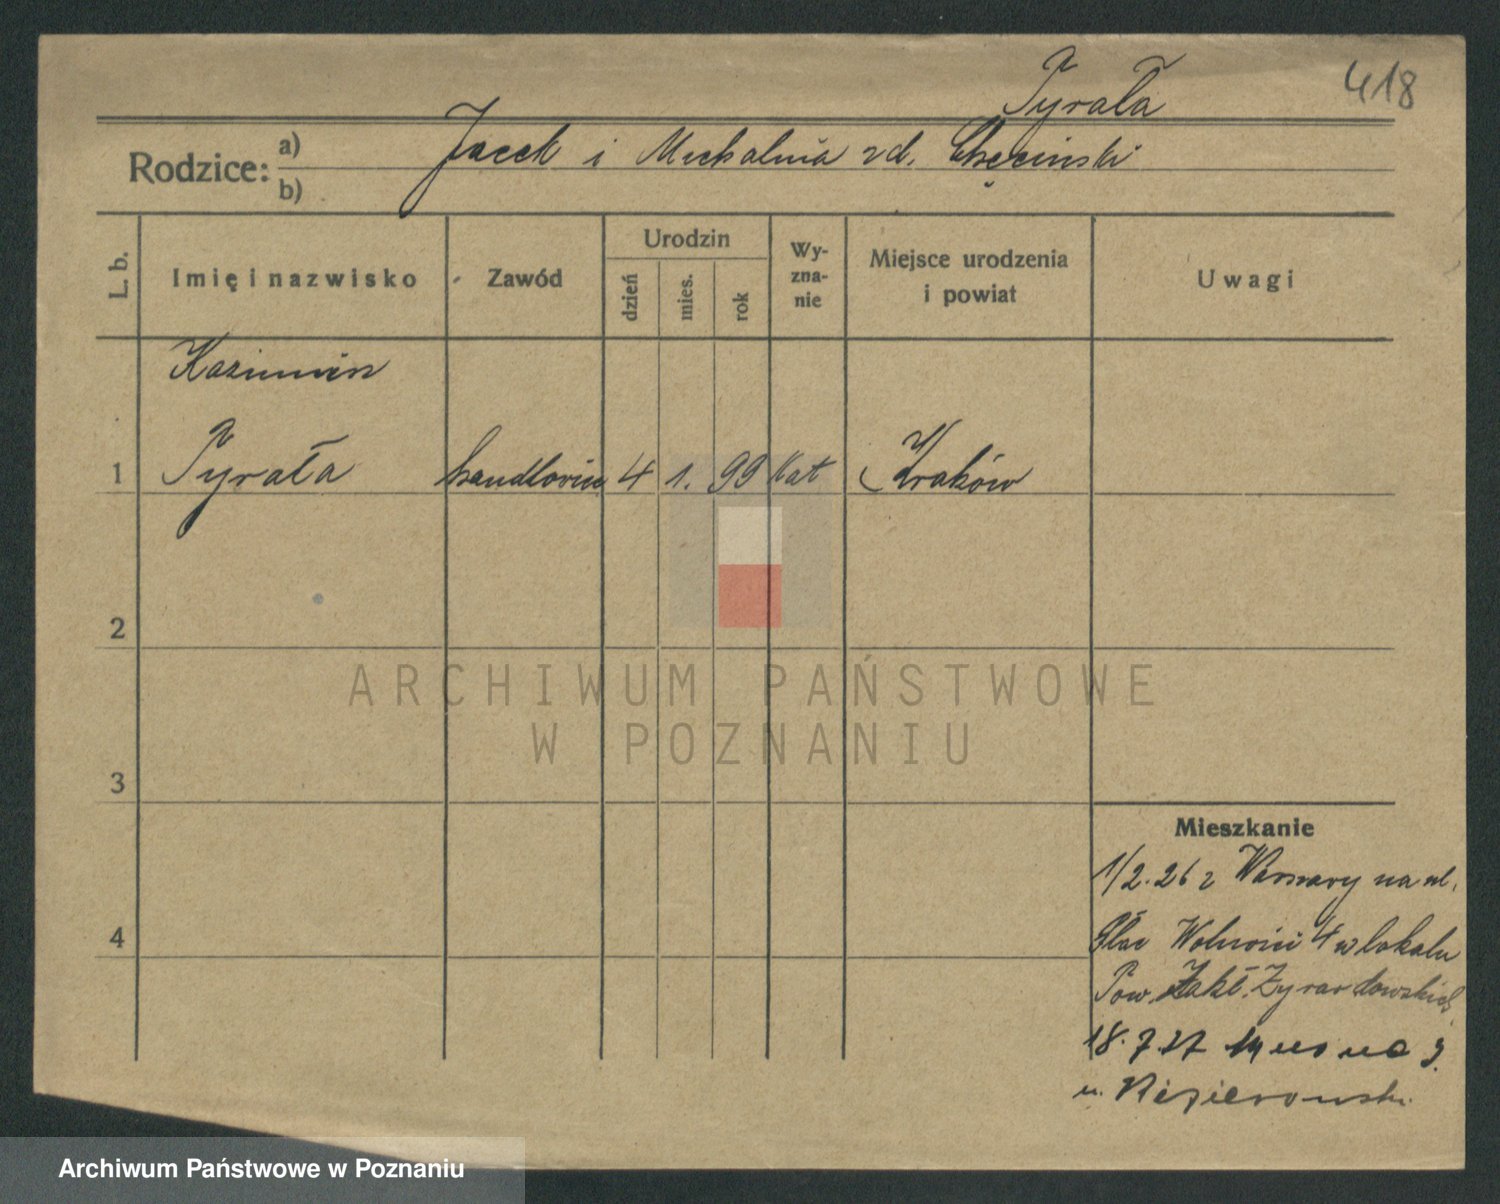 Pyrała 418
Rodzice: a) Jacek i Michalina zd. Chęcinski
b)
L. b.
Imię i nazwisko
Zawód
Urodzin
dzień
mies.
rok
Wy-
zna-
nie
Miejsce urodzenia
i powiat
Uwagi
Kazimierz
1 Pyrała handlowiec 4 1. 99 Kat Kraków
2
3
4
Mieszkanie
1/2. 26 z Warszawy na ul.
Plac Wolności 4 w lokalu
Tow. Zakł. Żyrardowskich
18. 7. 27
u.
ARCHIWUM PAŃSTWOWE
W POZNANIU
Archiwum Państwowe w Poznaniu